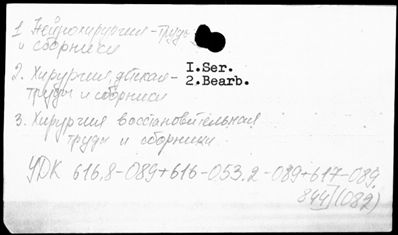 1. Нейрохирургия - труды
и сборники
I. Ser.
2. Хирургия, детская -
2. Bearb.
труды и сборники
3. Хирургия восстановительная
труды и сборники
УДК 616.8-089+616-053.2-089+617-089.
844](082)